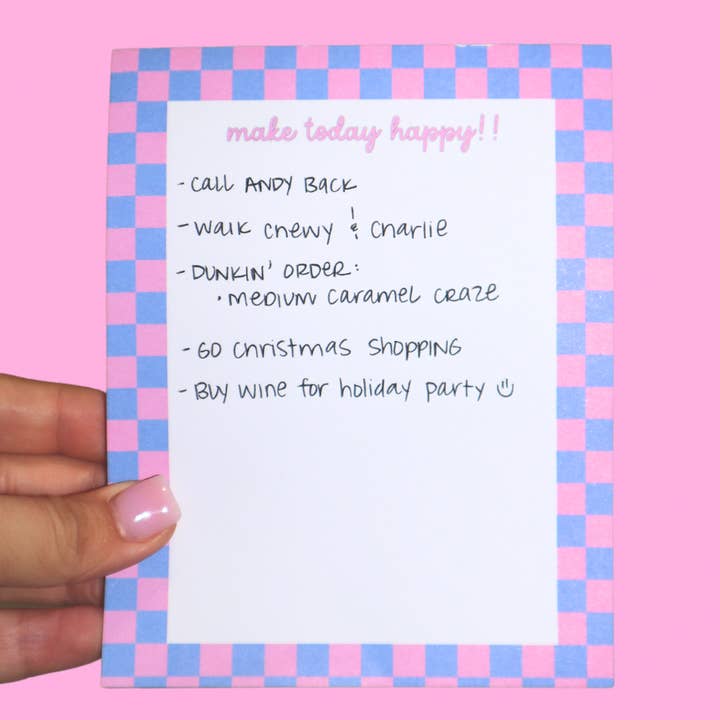 make today happy!!
- Call ANDY Back
- Walk Chewy & Charlie
- DUNKIN' ORDER:
• Medium Caramel Craze
- GO Christmas SHOPPING
- Buy wine for holiday party :)